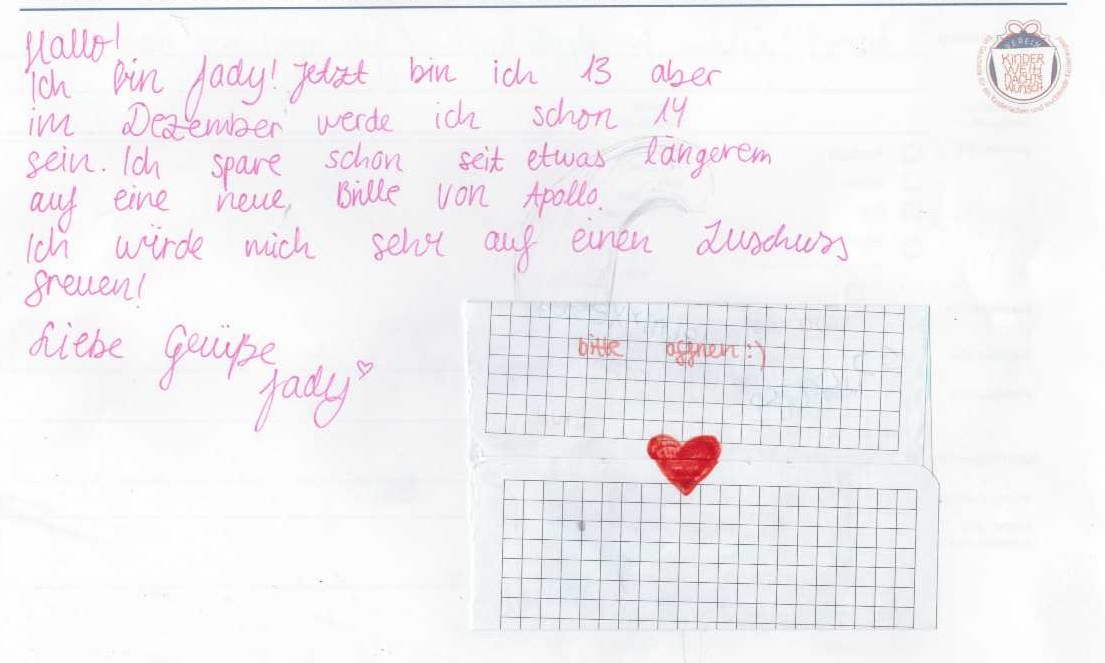 Hallo!
Ich bin Jady! Jetzt bin ich 13 aber
im Dezember werde ich schon 14
sein. Ich spare schon seit etwas längerem
auf eine neue Brille von Apollo.
Ich würde mich sehr auf einen Zuschuss
freuen!
Liebe Grüße
Jady
bitte öffnen :)
VEREIN
KINDER